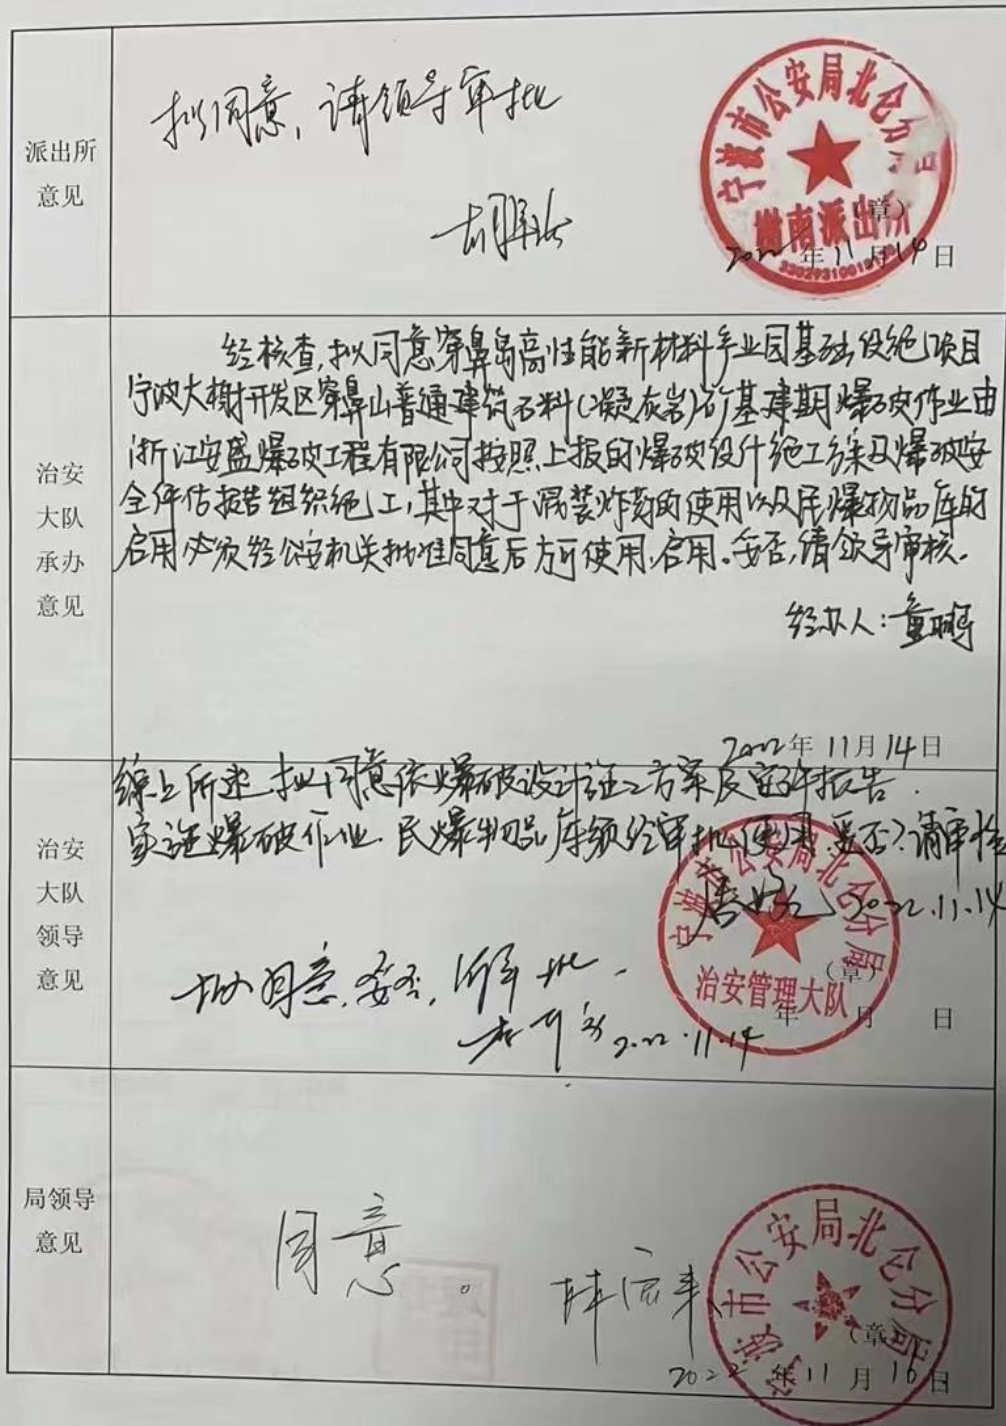 派出所
意见
拟同意，请领导审批
宁波市公安局北仑分局
榭南派出所
（章）
2022年11月14日
治安
大队
承办
意见
经核查，拟同意穿鼻岛高性能新材料产业园基础设施项目
宁波大榭开发区穿鼻山普通建筑石料(凝灰岩)矿基建期爆破作业由
浙江安盛爆破工程有限公司按照上报的爆破设计施工方案及爆破安
全评估报告组织施工，其中对于混装炸药的使用以及民爆物品库的
启用必须经公安机关批准同意后方可使用、启用。妥否，请领导审核。
经办人：童
2022年11月14日
治安
大队
领导
意见
综上所述，拟同意依爆破设计施工方案及安评报告
实施爆破作业。民爆物品库须经审批使用。妥否？请审核
2022.11.14
宁波市公安局北仑分局
治安管理大队
（章）
年 月 日
拟同意，妥否，请 批。
2022.11.14
局领导
意见
同意。
宁波市公安局北仑分局
（章）
2022年11月16日